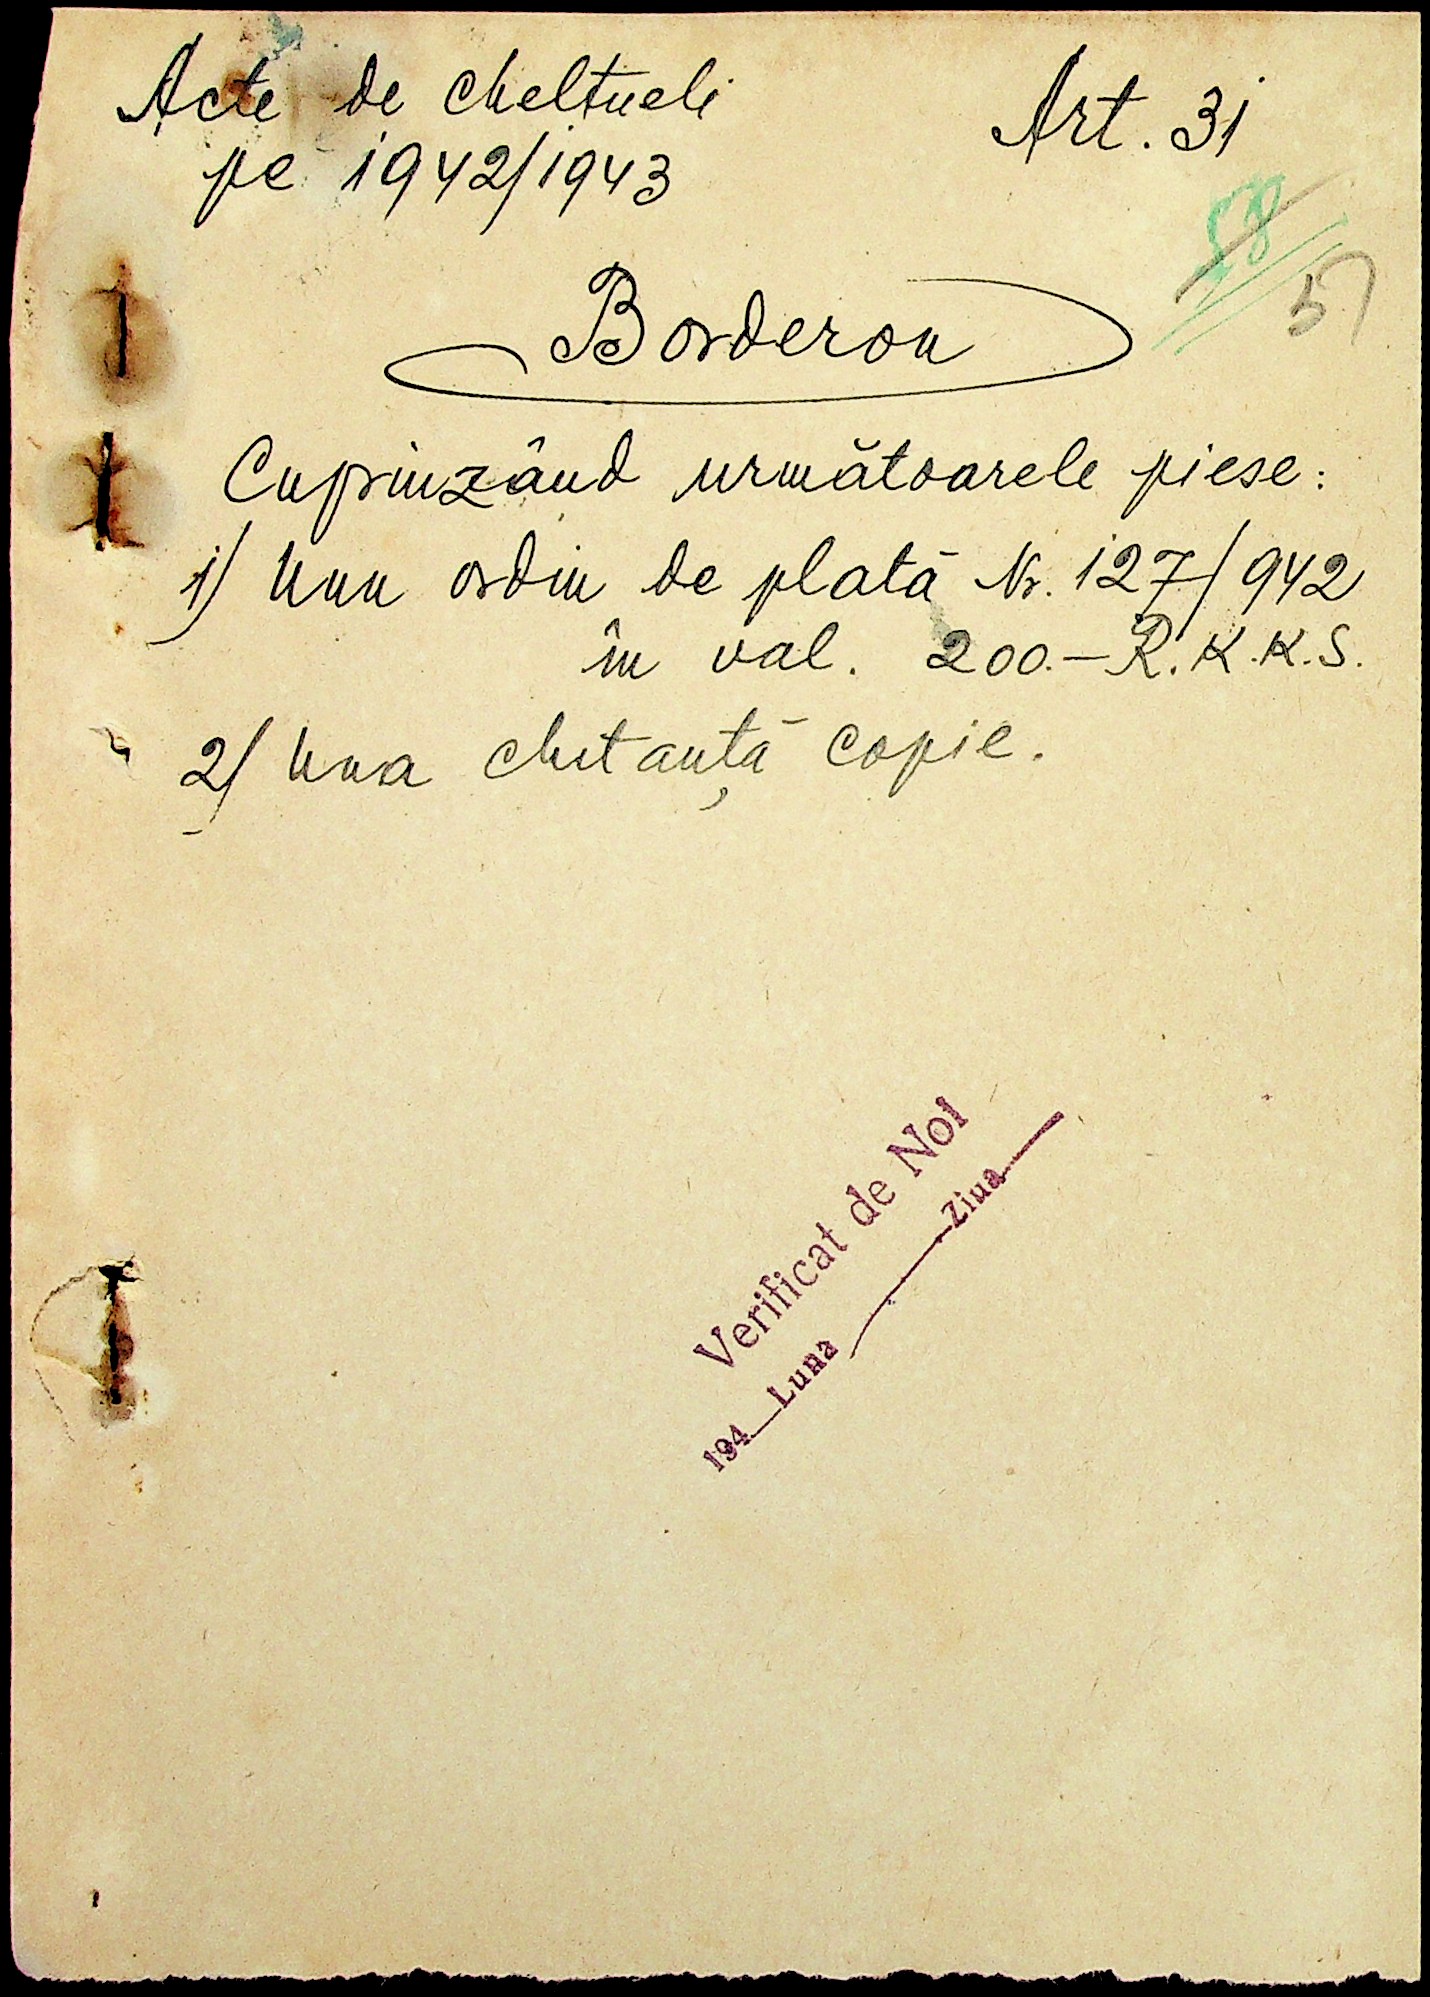 Acte de cheltueli
pe 1942/1943
Art. 31
58
57
Borderou
Cuprinzând următoarele piese:
1/ Unu ordin de plată Nr. 127/942
în val. 200.— R.K.K.S.
2/ Una chitanță copie.
Verificat de Noi
194__Luna____Ziua__